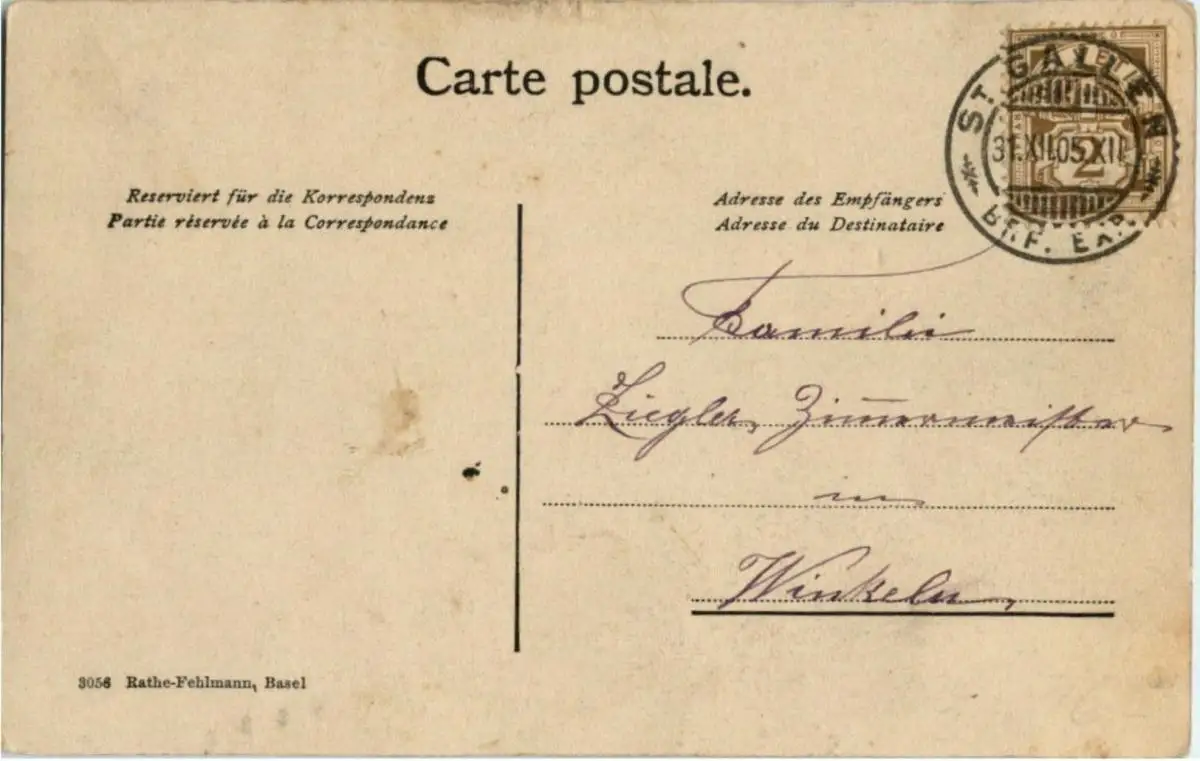 Carte postale.
Reserviert für die Korrespondenz
Partie réservée à la Correspondance
Adresse des Empfängers
Adresse du Destinataire
ST. GALLEN
31.XII.05.XII
BF.F. EXP.
2
Familie
Ziegler, Zimmermeister
in
Winkeln
3056 Rathe-Fehlmann, Basel